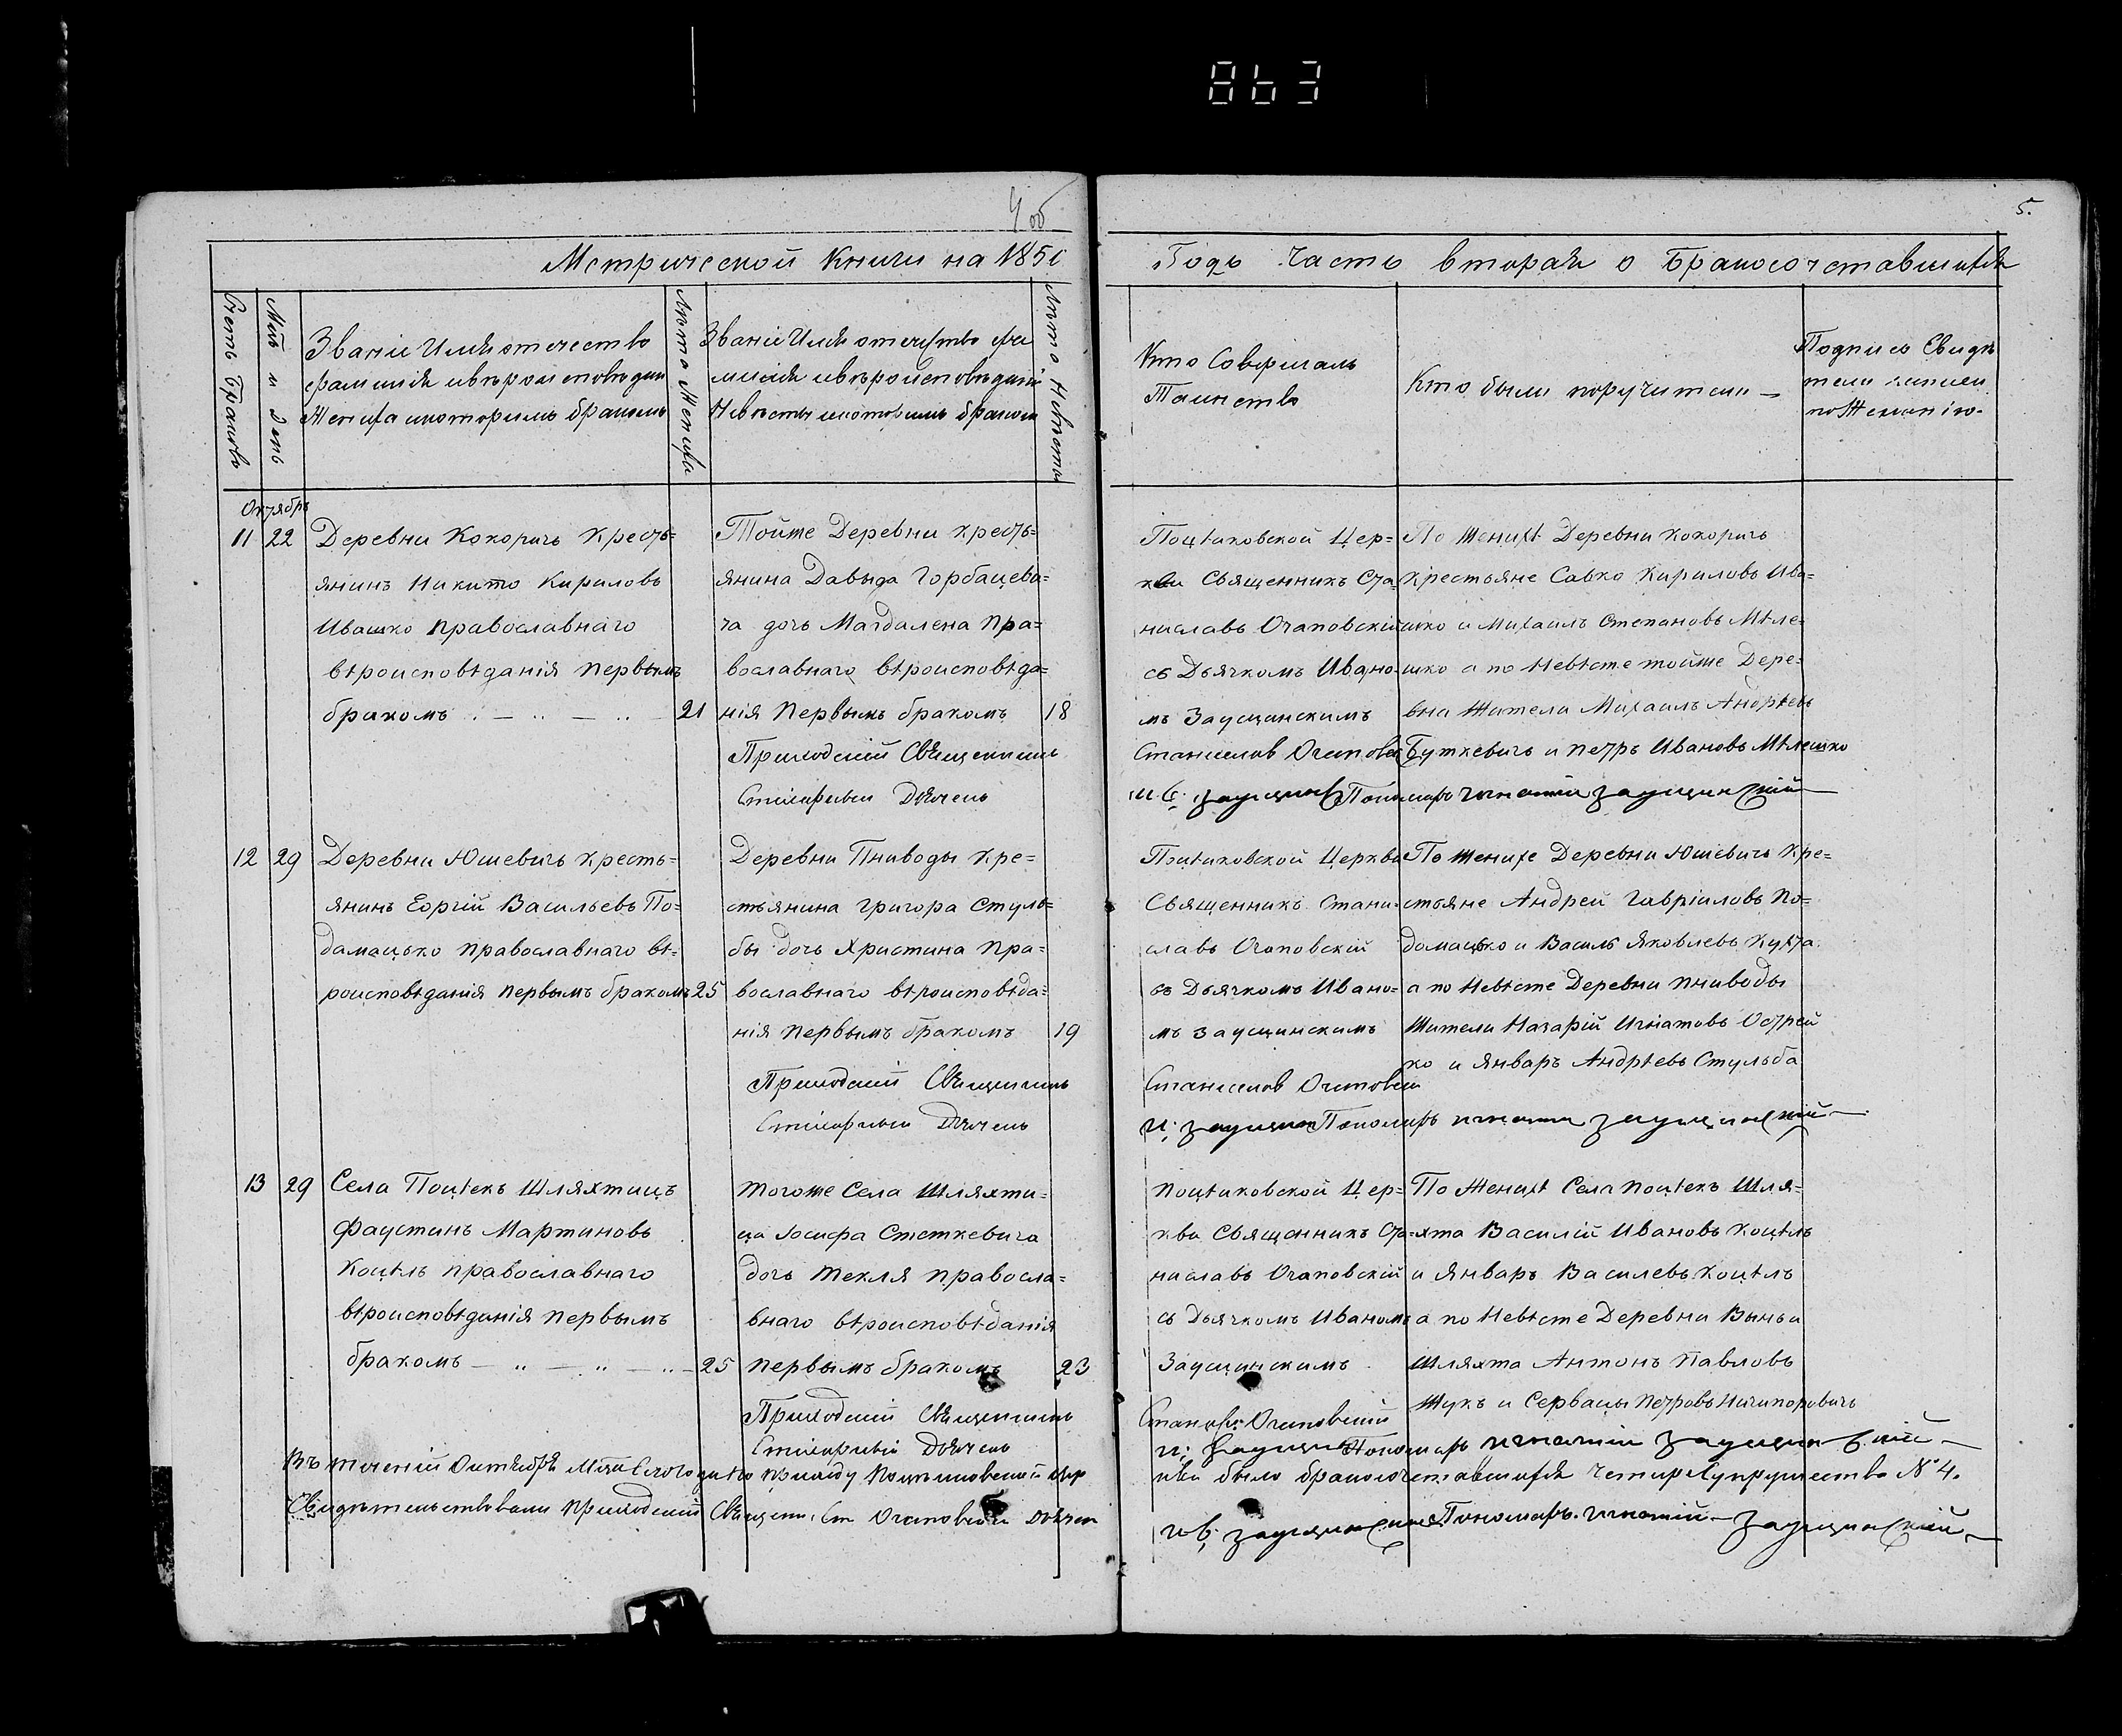 863
4 об
5.
Метрической Книги на 1851
Годъ Часть вторая о Бракосочетавшихся
Счетъ Браковъ
Мсцъ и день
Званіе Имя отечество
фамилія ивѣроисповѣдан
Жениха икоторымъ бракомъ
Лѣто Жениха
Званіе Имя отечество фа
милія ивѣроисповѣданій
Невѣсты икоторымъ бракомъ
Лѣто Невѣсты
Кто Совершалъ
Таинство
Кто были поручители —
Подписъ Свидѣ
тели записи
по Желанію.
Октябрь
11 22
Деревни Кокоричъ Кресть=
янинъ Никито Кириловъ
Ивашко православнаго
вѣроисповѣданія первымъ
бракомъ 21
Тойже Деревни кресть=
янина Давыда Горбацеви=
ча дочь Магдалена пра=
вославнаго вѣроисповѣда=
нія Первымъ бракомъ 18
Приходскій Священникъ
Дьячекъ
Поцѣиковской Цер=
кви Священникъ Ста=
ниславъ Очаповскій
съ Дьячкомъ Ивано=
мъ Заусцинскимъ
По женихѣ Деревни Кокоричъ
крестьяне Савко Кириловъ Ива=
шко и Михаилъ Степановъ Мѣле=
шко а по Невѣсте тойже Дере=
вни Жители Михаилъ Андрѣевъ
Буткевичъ и Петръ Ивановъ Мѣлешко
Пономарь Игнатій Заусцинскій
12 29
Деревни Юшевичъ кресть=
янинъ Еоргій Васильевъ По=
дамацько православнаго вѣ=
роисповѣданія первымъ бракомъ 25
Деревни Пниводы кре=
стьянина Григора Стуль=
бы дочь Христина пра=
вославнаго вѣроисповѣда=
нія первымъ бракомъ 19
Приходскій Священникъ
Дьячекъ
Поцѣиковской Церкви
Священникъ Стани=
славъ Очаповскій
съ Дьячкомъ Ивано=
мъ Заусцинскимъ
По женихе Деревни Юшевичъ Кре=
стьяне Андрей Гавріиловъ По=
домацько и Василь Яковлевъ Кухта
а по Невѣсте Деревни Пниводы
Жители Назарій Игнатовъ Острей
ко и Январъ Андрѣевъ Стульба
Пономарь Игнатій Заусцинскій
13 29
Села Поцѣекъ Шляхтицъ
Фаустинъ Мартиновъ
Коцѣлъ православнаго
вѣроисповѣданія первымъ
бракомъ 25
тогоже Села Шляхти=
ца Іосифа Стеткевича
дочь Текля правосла=
внаго вѣроисповѣданія
первымъ бракомъ 23
Приходскій Священникъ
Дьячекъ
Поцѣиковской Цер=
кви Священникъ Ста=
ниславъ Очаповскій
съ Дьячкомъ Иваномъ
Заусцинскимъ
По Женихѣ Села Поцѣекъ Шля=
хта Василій Ивановъ Коцѣлъ
и Январъ Василевъ Коцѣлъ
а по Невѣсте Деревни Выньи
Шляхта Антонъ Павловъ
Жукъ и Сервацы Петровъ Ничипоровичъ
Пономарь Игнатій Заусцинскій
Въ теченіи Октября Мсца Сего Года по приходу Поцѣиковской цер
кви было бракосочетавшихся четыре Супружества № 4.
Свидѣтельствовали Приходскій Священ. Ст Очаповскій Дьячек
Пономарь Игнатій Заусцинскій